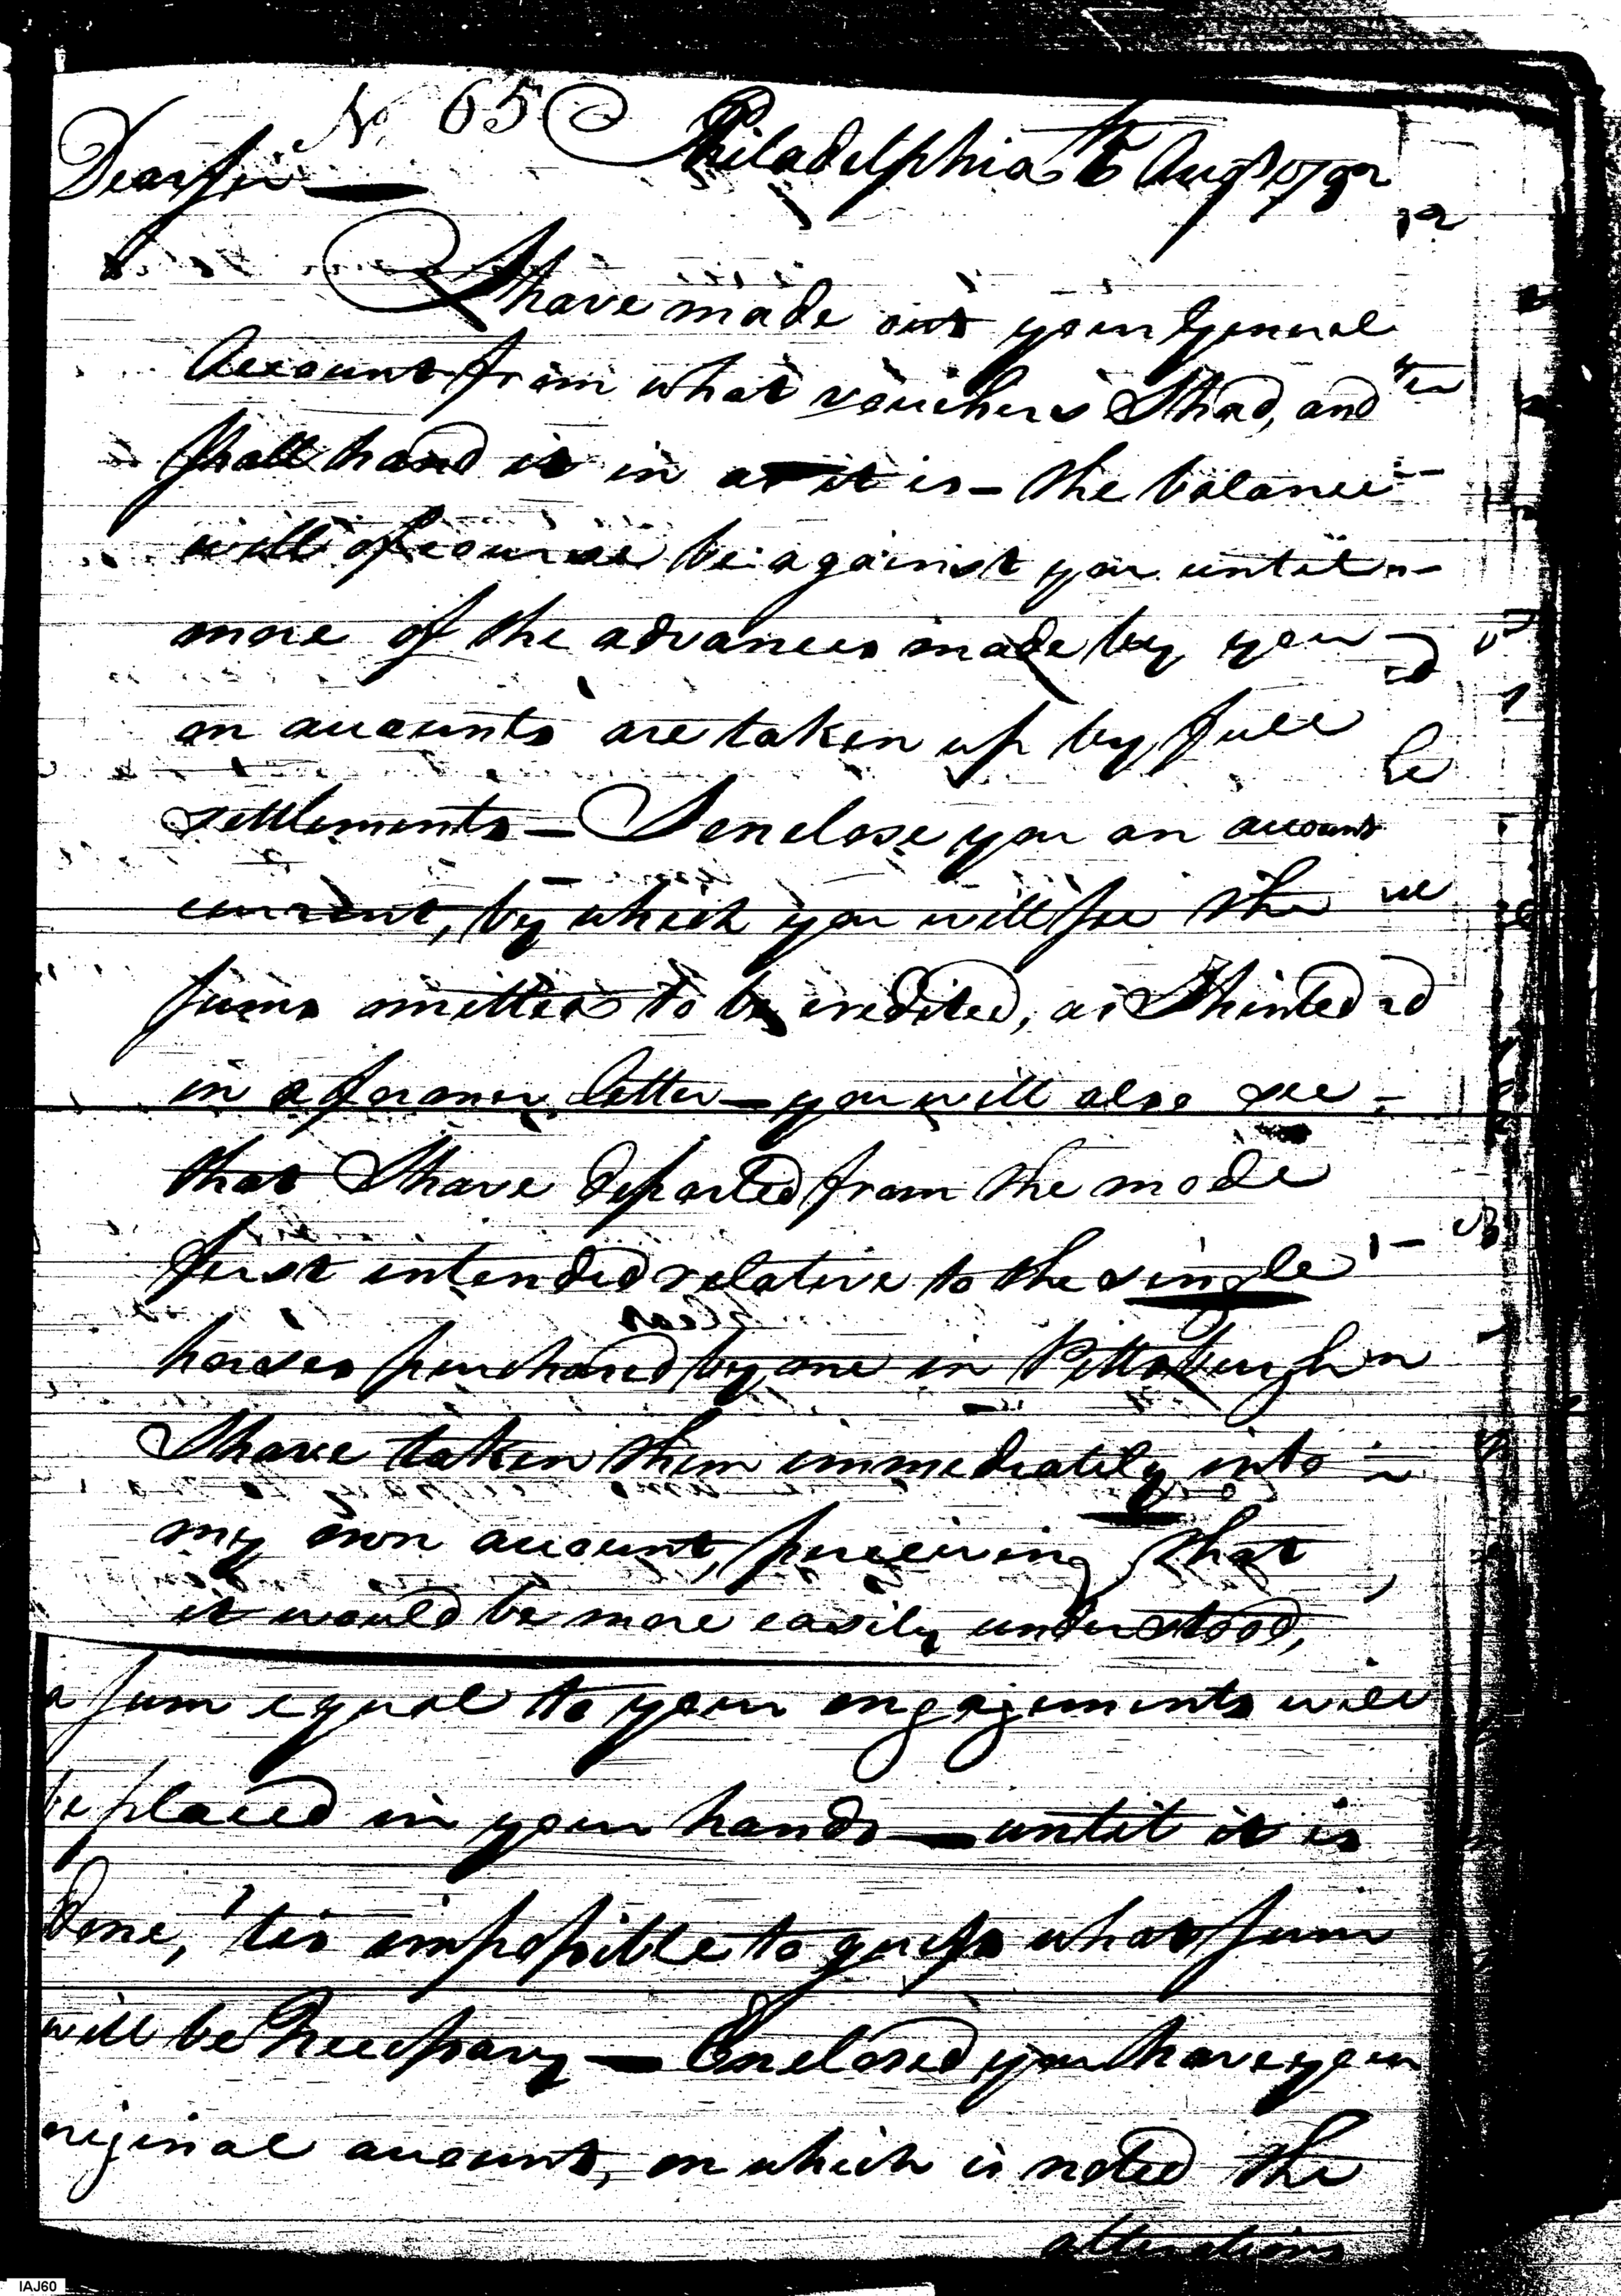 No 65
Philadelphia 6 Augst 1792
Dear Sir
I have made out your General
Account from what vouchers I had, and
shall hand it in as it is – the balance
will of course be against you until
more of the advances made by you
on accounts are taken up by full
settlements – I enclose you an account
current, by which you will see the
sums omitted to be credited, as I hinted
in a former letter – you will also see
that I have departed from the mode
first intended relative to the single
horses purchased by me in Pittsburgh
I have taken them immediately into
my own account, perceiving that
it would be more easily understood,
a sum equal to your engagements will
be placed in your hands – until it is
done, 'tis impossible to guess what sum
will be necessary – Enclosed you have your
original account, on which is noted the
alterations
IAJ60